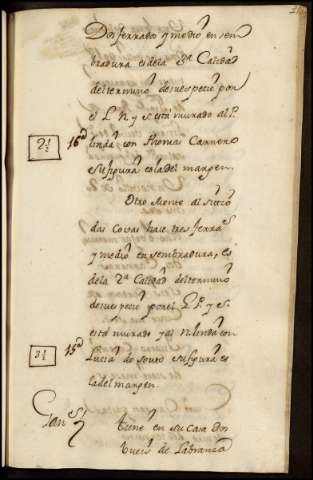 Dos ferrados y medio en sem
bradura es dela 3ª Calidad
deltermino desu especie por
el L. P. y está murado al P.
2½ 16ª linda con thomas Carnero
su figura es la del margen.
Otro Monte al sitio
das Covas hace tres ferras
y medio en sembradura, es
dela 2ª Calidad deltermino
desu especie por el L. P. y
está murado y al N. linda con
3½ 15ª Lucia de Souto su figura es
la del margen.
tiene en su casa Dos
Bueis de Labranza